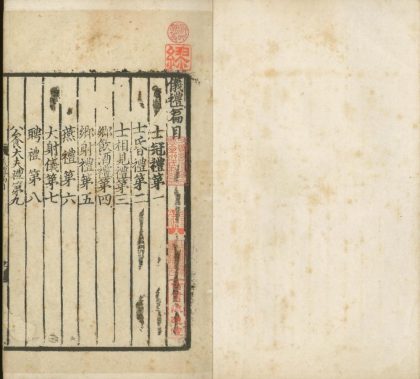 儀禮篇目
士冠禮第一
士昏禮第二
士相見禮第三
鄉飲酒禮第四
鄉射禮第五
燕禮第六
大射儀第七
聘禮第八
公食大夫禮第九